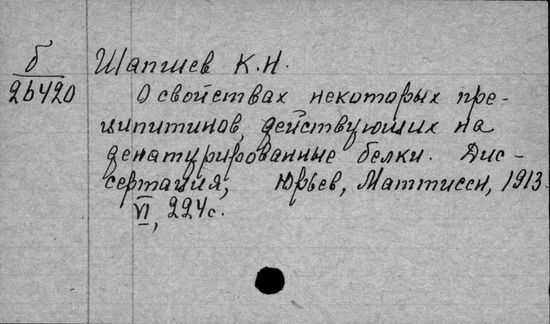 б
26420
Шапшев К.Н.
О свойствах некоторых пре-
ципитинов, действующих на
денатурированные белки. Дис-
сертация, Юрьев, Маттисен, 1913.
VI, 224с.